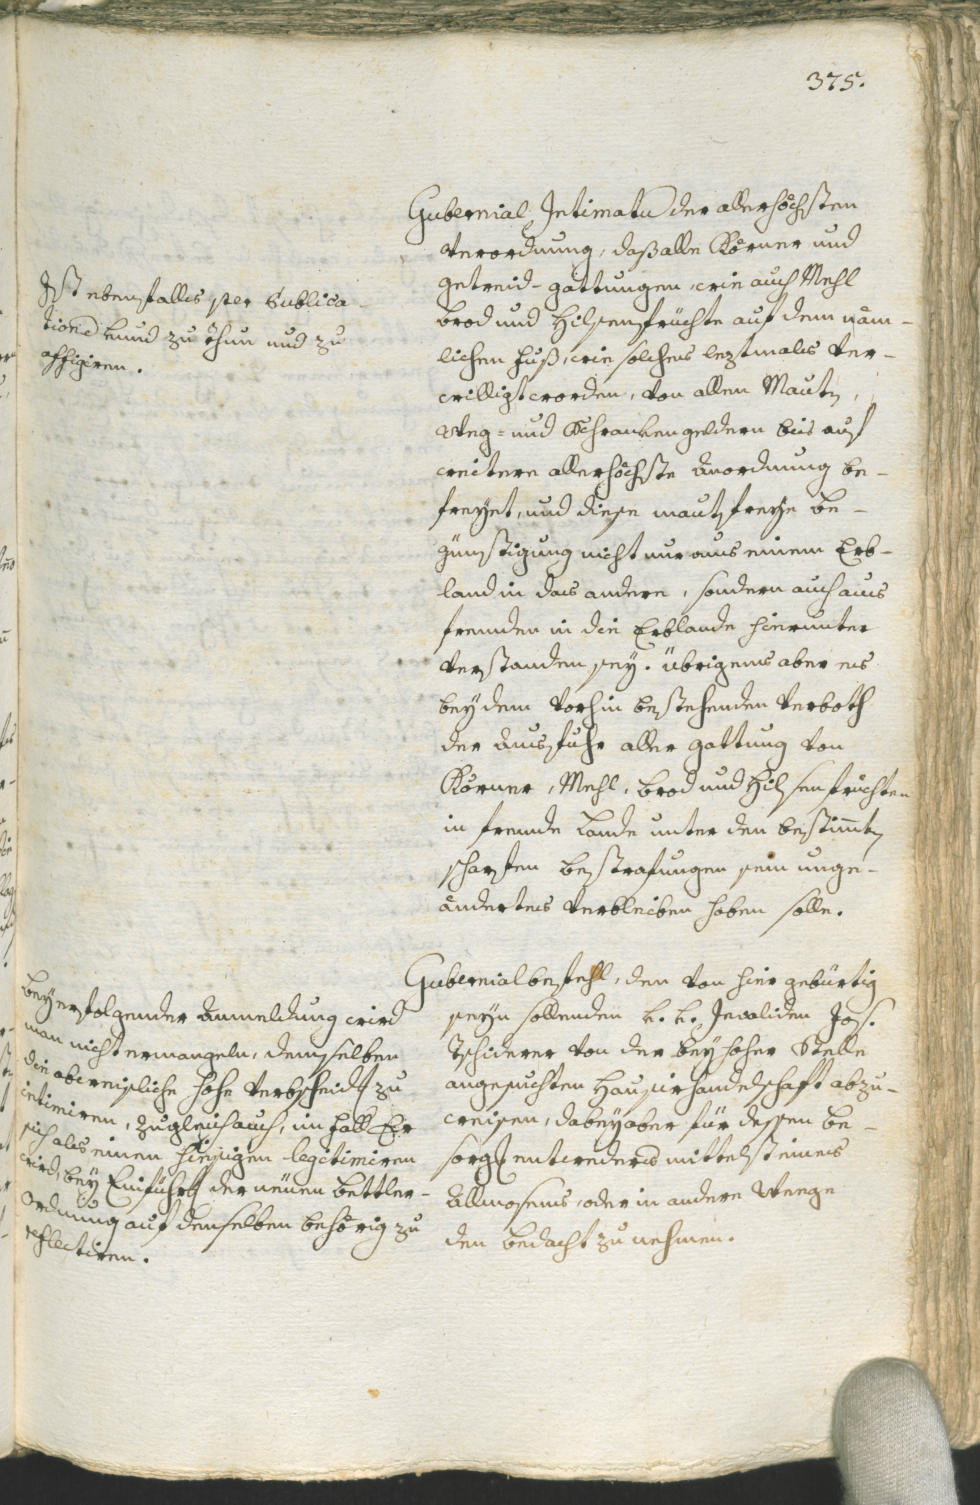 375.
Gubernial Intimatu der allerhöchsten
Verordnung, daß alle Körner und
getreid-gattungen, wie auch Mehl
brod und Hilsenfrüchte auf dem näm-
lichen Fuß, wie solches leztmals ver-
williget worden, von allen Mauth,
Weg- und Schrankengeldern bis auf
weitere allerhöchste Anordnung be-
freyet, und diese mautfreye be-
günstigung nicht nur aus einem Erb-
land in das andere, sondern auch aus
fremden in die Erblande hierunter
verstanden sey. übrigens aber es
bey dem vorhin bestehenden Verboth
der Ausfuhr aller gattung von
Körner, Mehl, brod und Hilsenfrüchten
in fremde Lande unter den bestimten
scharfen bestrafungen sein unge-
ändertes Verbleiben haben solle.
Ist ebenfalls per Publica-
tione kund zu thun und zu
affigiren.
Gubernialbefehl, den von hier gebürtig
seyn sollenden k. k. Invaliden Jos.
Tschiderer von der bey hoher Stelle
angesuchten Hausirhandelschaft abzu-
weisen, dabey aber für dessen be-
sorg[un]g entweders mittelst eines
Allmosens, oder in andere Weege
den bedacht zu nehmen.
bey erfolgender Anmeldung wird
man nicht ermangeln, demselben
die obereisliche hohe Verbscheidg zu
intimiren, zugleich auch, im fall Er
sich als einen hiesigen legitimiren
wird, bey Einführg der neuen bettler-
ordnung auf denselben behörig zu
reflectiren.